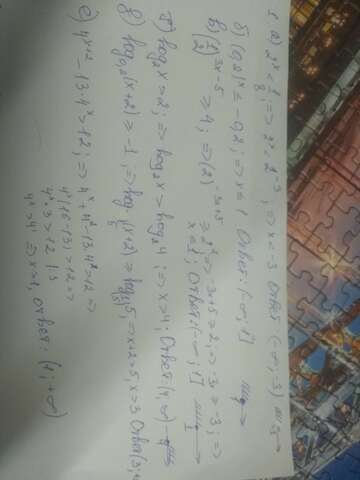 1. а) 2^x < 1/8; => 2^x < 2^-3; => x < -3 Ответ (-∞; -3)
б) (0,2)^x ≤ -0,2; => x ≤ 1 Ответ: (-∞; 1]
в) (1/2)^3x-5 ≥ 4; => (2)^-3x+5 ≥ 2^2; => -3x+5 ≥ 2; => -3x ≥ -3; =>
x ≤ 1; Ответ: (-∞; 1]
log2 x > 2; => log2 x > log2 4; => x > 4; Ответ: (4; ∞)
log0,2(x+2) ≥ -1; => log (x+2) ≥ log 5; => x+2 > 5; x > 3 Ответ (3;
е) 4^x+2 - 13·4^x > 12; => 4^x · 4^2 - 13·4^x > 12 =>
4^x(16-13) > 12 =>
4^x · 3 > 12 | :3
4^x > 4 => x > 1, ответ: (1; +∞)